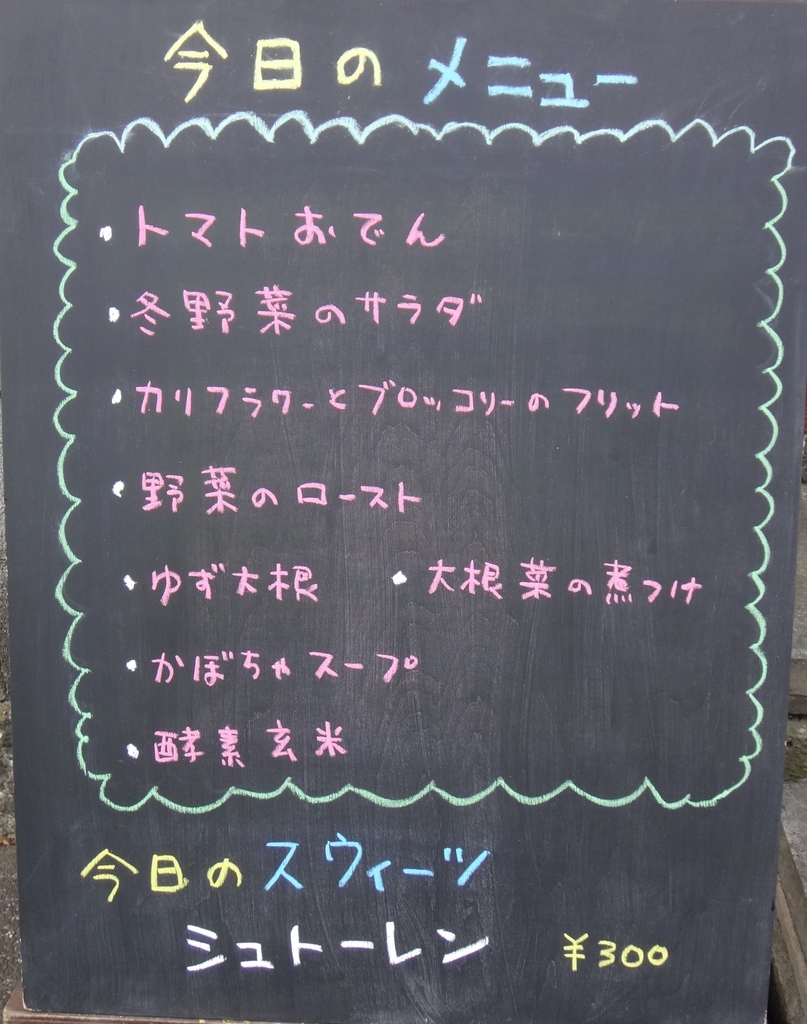 今日のメニュー
・トマトおでん
・冬野菜のサラダ
・カリフラワーとブロッコリーのフリット
・野菜のロースト
・ゆず大根 ・大根菜の煮つけ
・かぼちゃスープ
・酵素玄米
今日のスウィーツ
シュトーレン ¥300